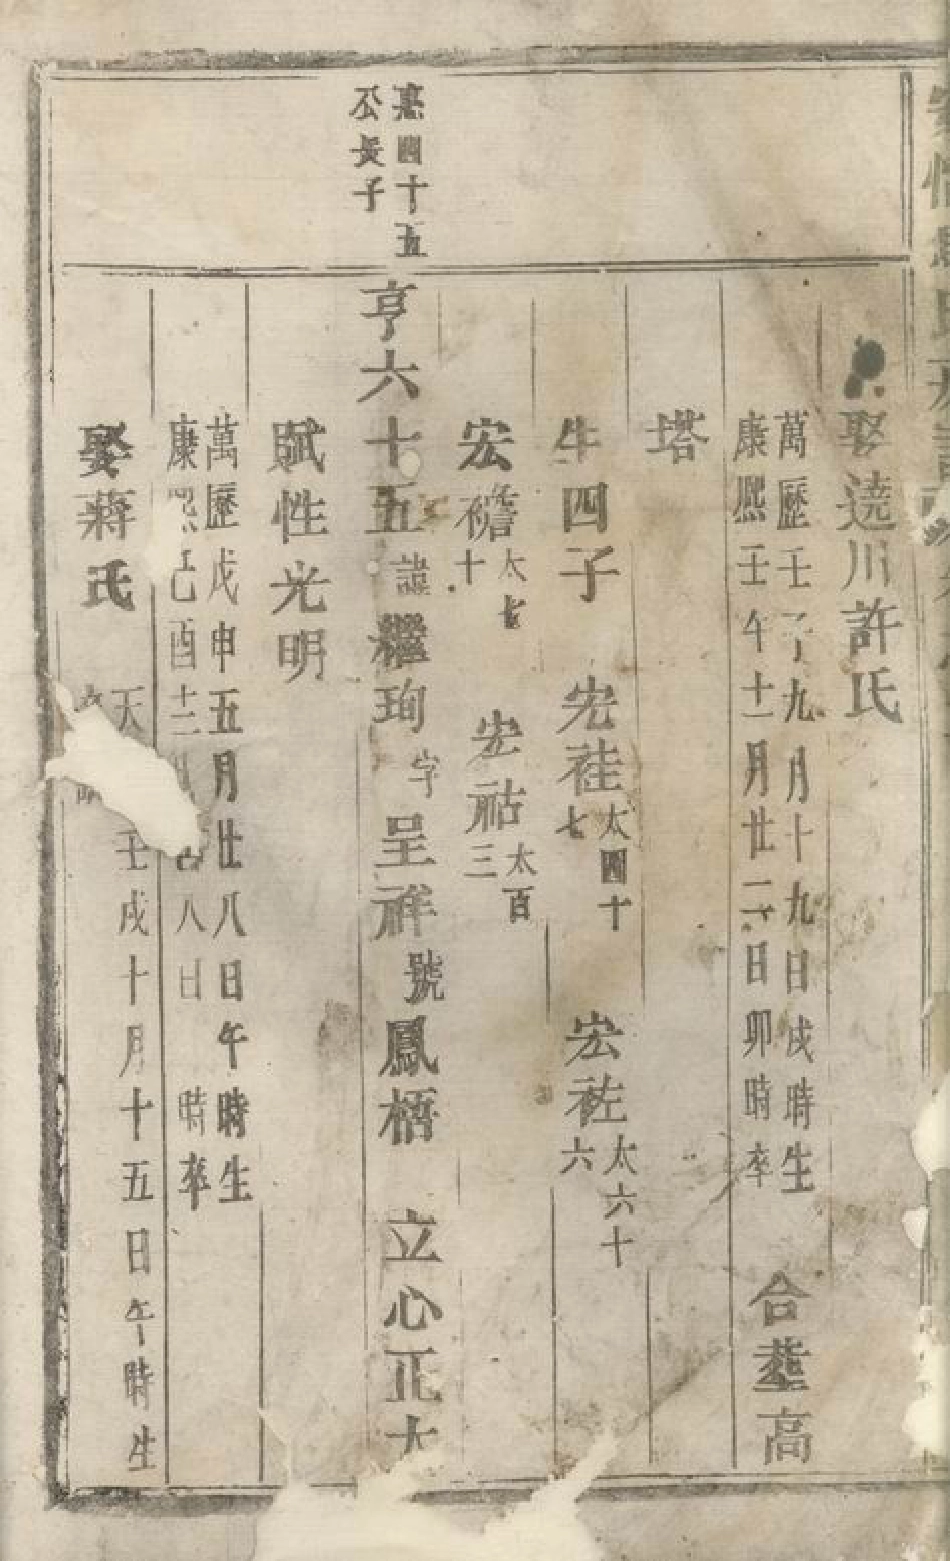 娶遶川許氏
萬歷壬子九月十九日戌時生
康熙壬午十一月廿二日卯時卒
合塟高
塔
生四子 宏祛太四十七 宏祛太六十六
宏襜太七十 宏祜太百三
惠四十五
公長子
亨六十五諱繼珣字呈祥號鳳梧 立心正大
賦性光明
萬歷戊申五月廿八日午時生
康熙己酉十二月 八日 時卒
娶蔣氏
天 壬戌十月十五日午時生